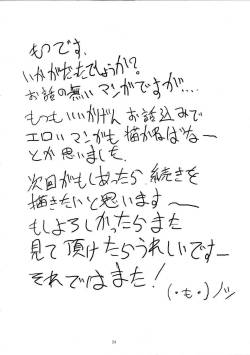 もつです。
いかがだたでしょうか?
お話の無いマンガですが...
もっといいかげんお話込みで
エロいマンガも描かねばなー
とか思いました。
次回がもしあったら続きを
描きたいと思います〜
もしよろしかったらまた
見て頂けたらうれしいですー
それではまた!
(・も・)ノシ
24